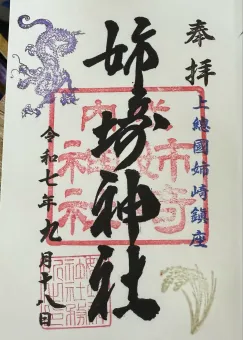 奉拝
上總國姉崎鎮座
姉埼神社
令和七年九月十八日